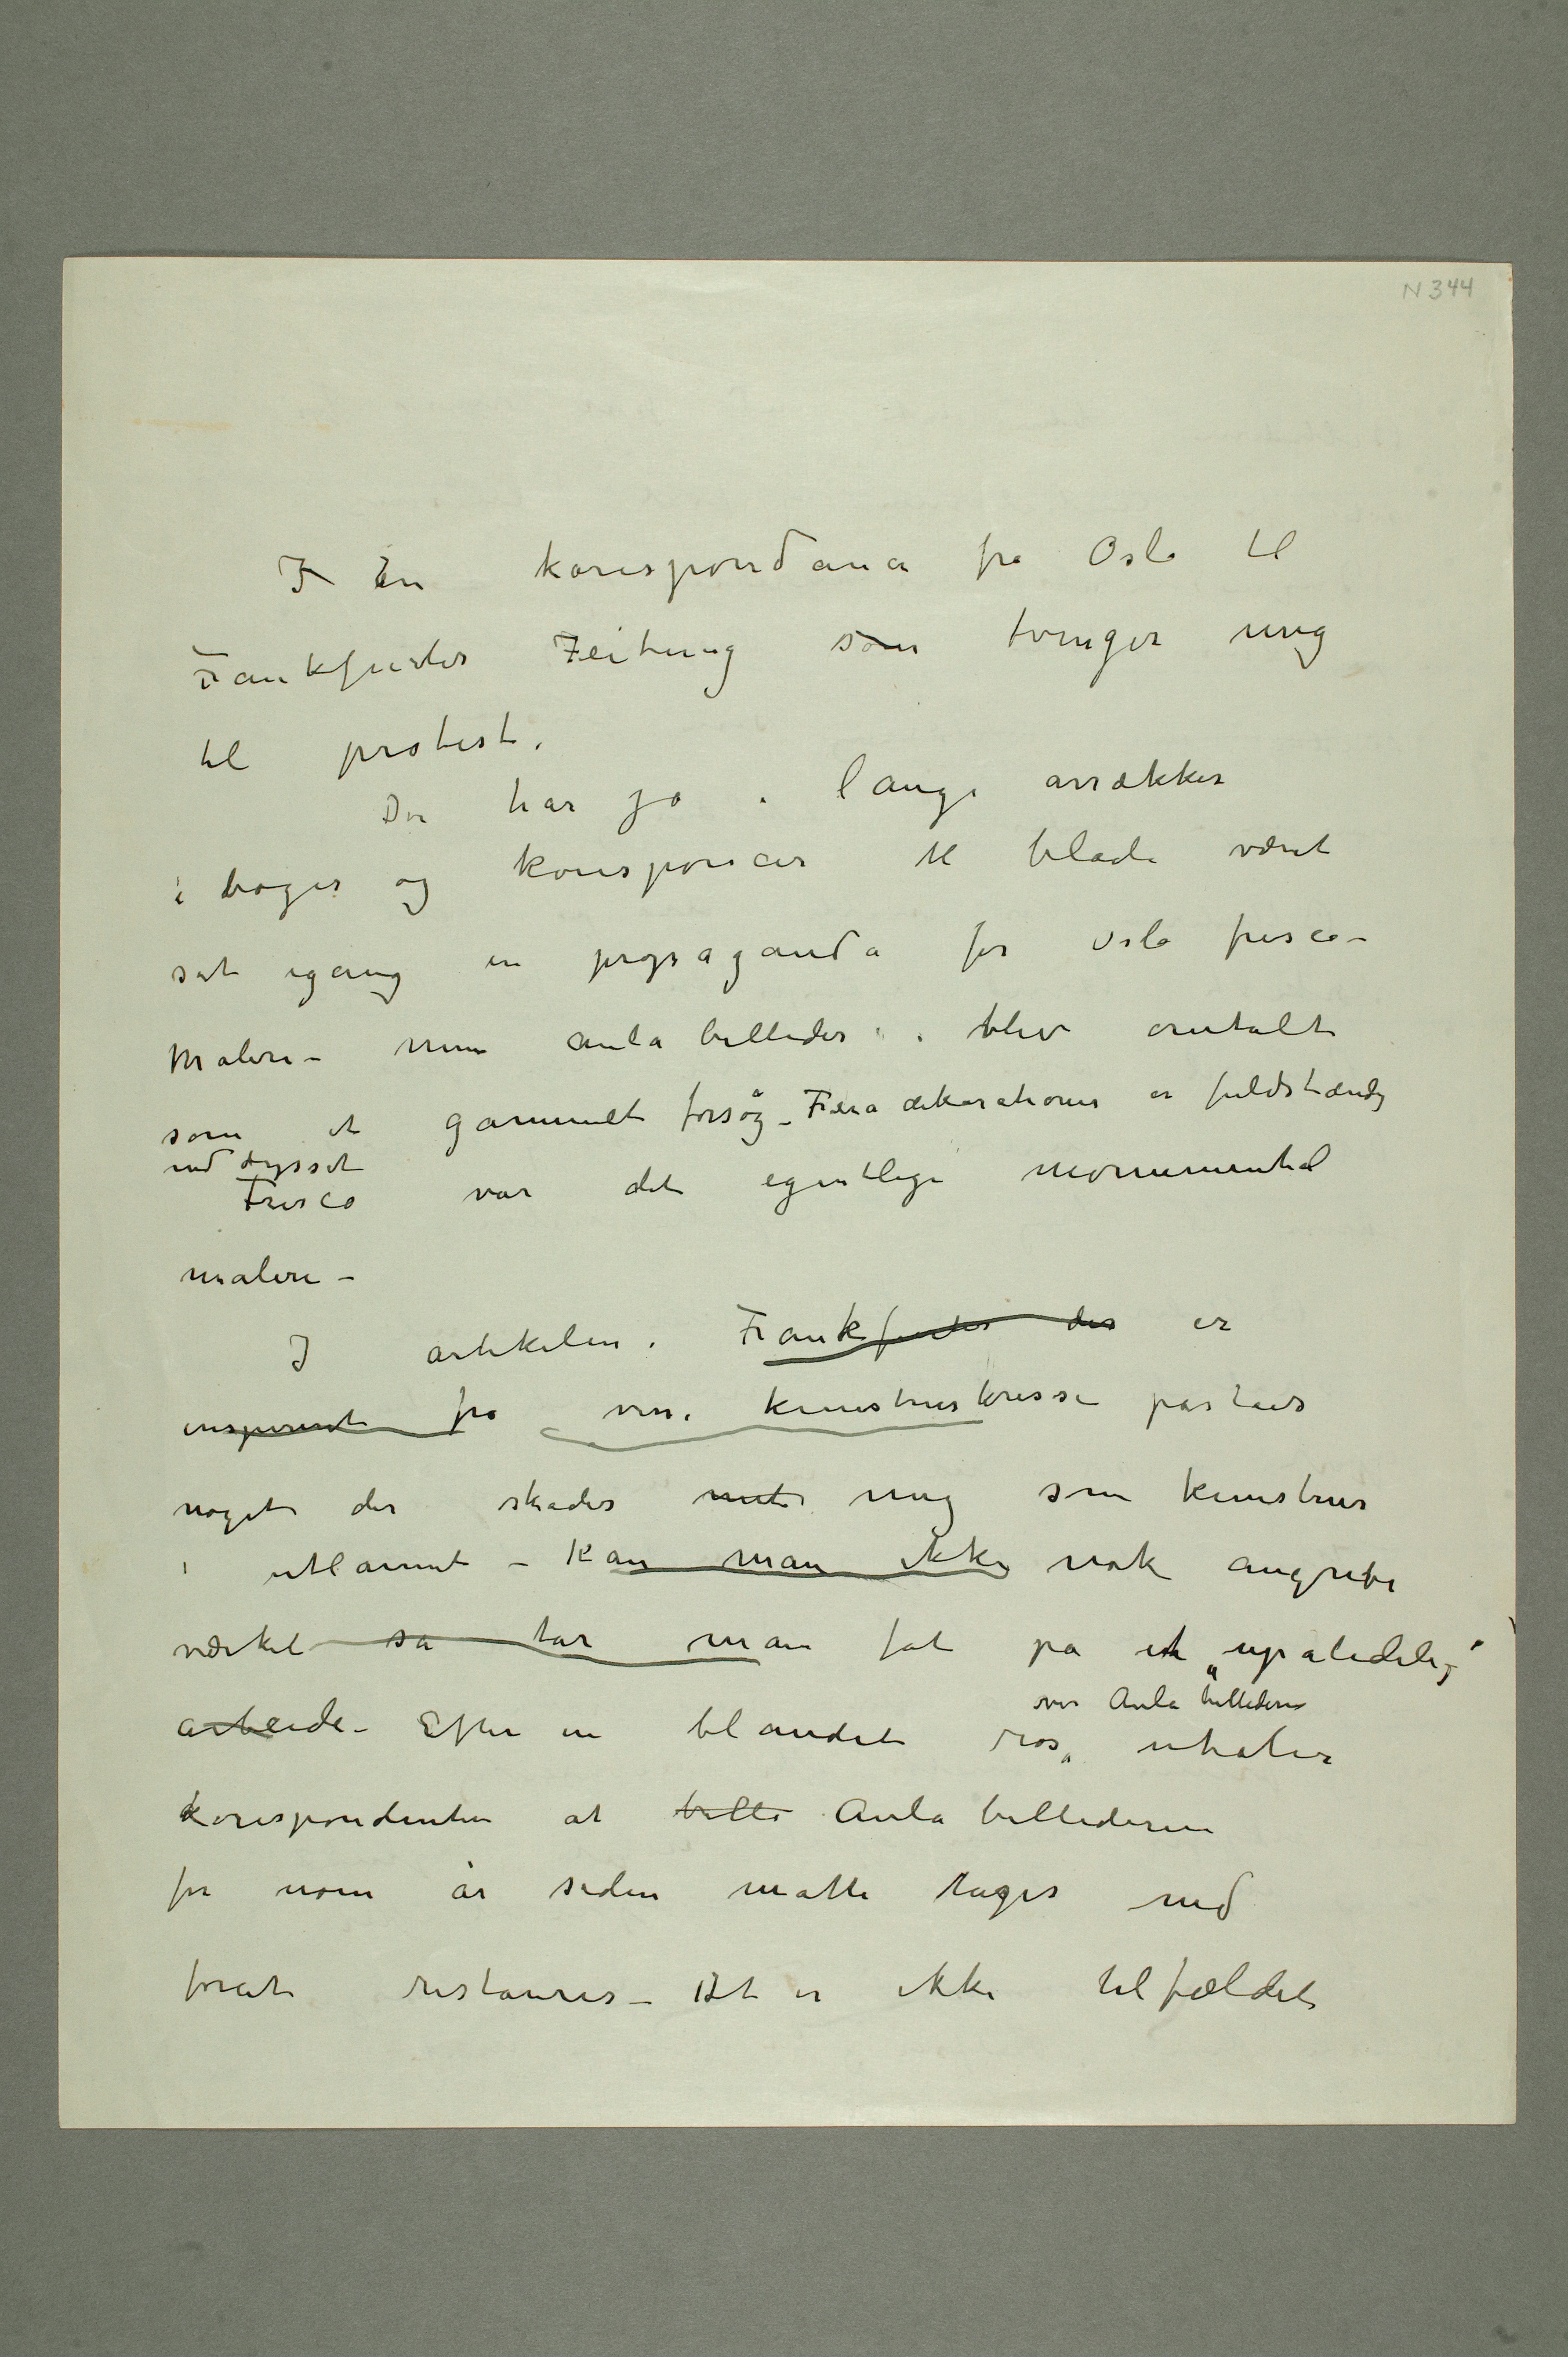 N 344
I En korespondance fra Oslo til
Frankfurter Zeitung som tvinger mig
til protest.
Der har jo i lange arrækker
i bøger og koresponcer til blade været
sat igang en propaganda for Oslo fresco-
maleri – mine aula billeder blev omtalt
som et gammelt forsøg – Freia dekorationer er fuldstændig
nedtysset
Fresco var det egentlige monumental
maleri –
I artikelen i Frankfurter der er
inspireret fra visse kunstnerkresse påståes
noget der skader mit mig som kunstner
i utlannet – Kan man ikke nok angribe
værket så tar man fat på et „upålidelig“
arbeide – Efter en blandet ros uttaler
over Aula billederne
korespondenten at bille Aula billederne
for noen år siden måtte tages ned
forat restaureres – Det er ikke tilfældet